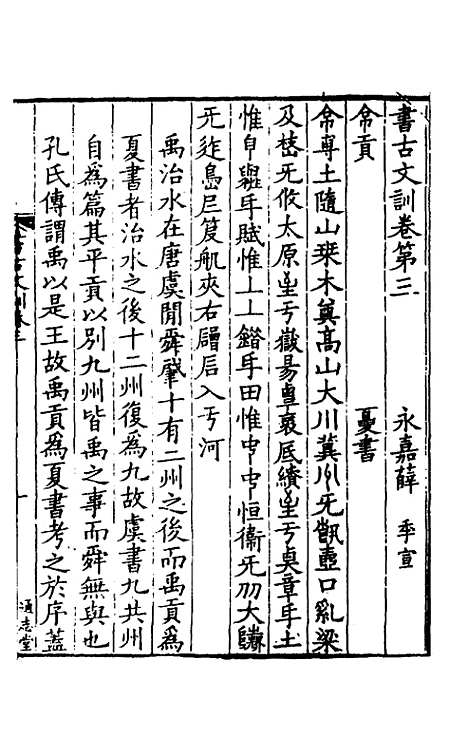 書古文訓卷第三 永嘉薛 季宣
貢 夏書
土隨山栞木奠高山大川冀旡壺口亂梁
及旡攸太原亏嶽昜厎績亏章手土
惟手賦惟上上手田惟中中恒衞旡大
旡島夾右入亏河
禹治水在唐虞閒舜肇十有二州之後而禹貢爲
夏書者治水之後十二州復爲九故虞書九共州
自爲篇其平貢以別九州皆禹之事而舜無與也
孔氏傳謂禹以是王故禹貢爲夏書考之於序蓋
書古文訓卷三
一
通志堂